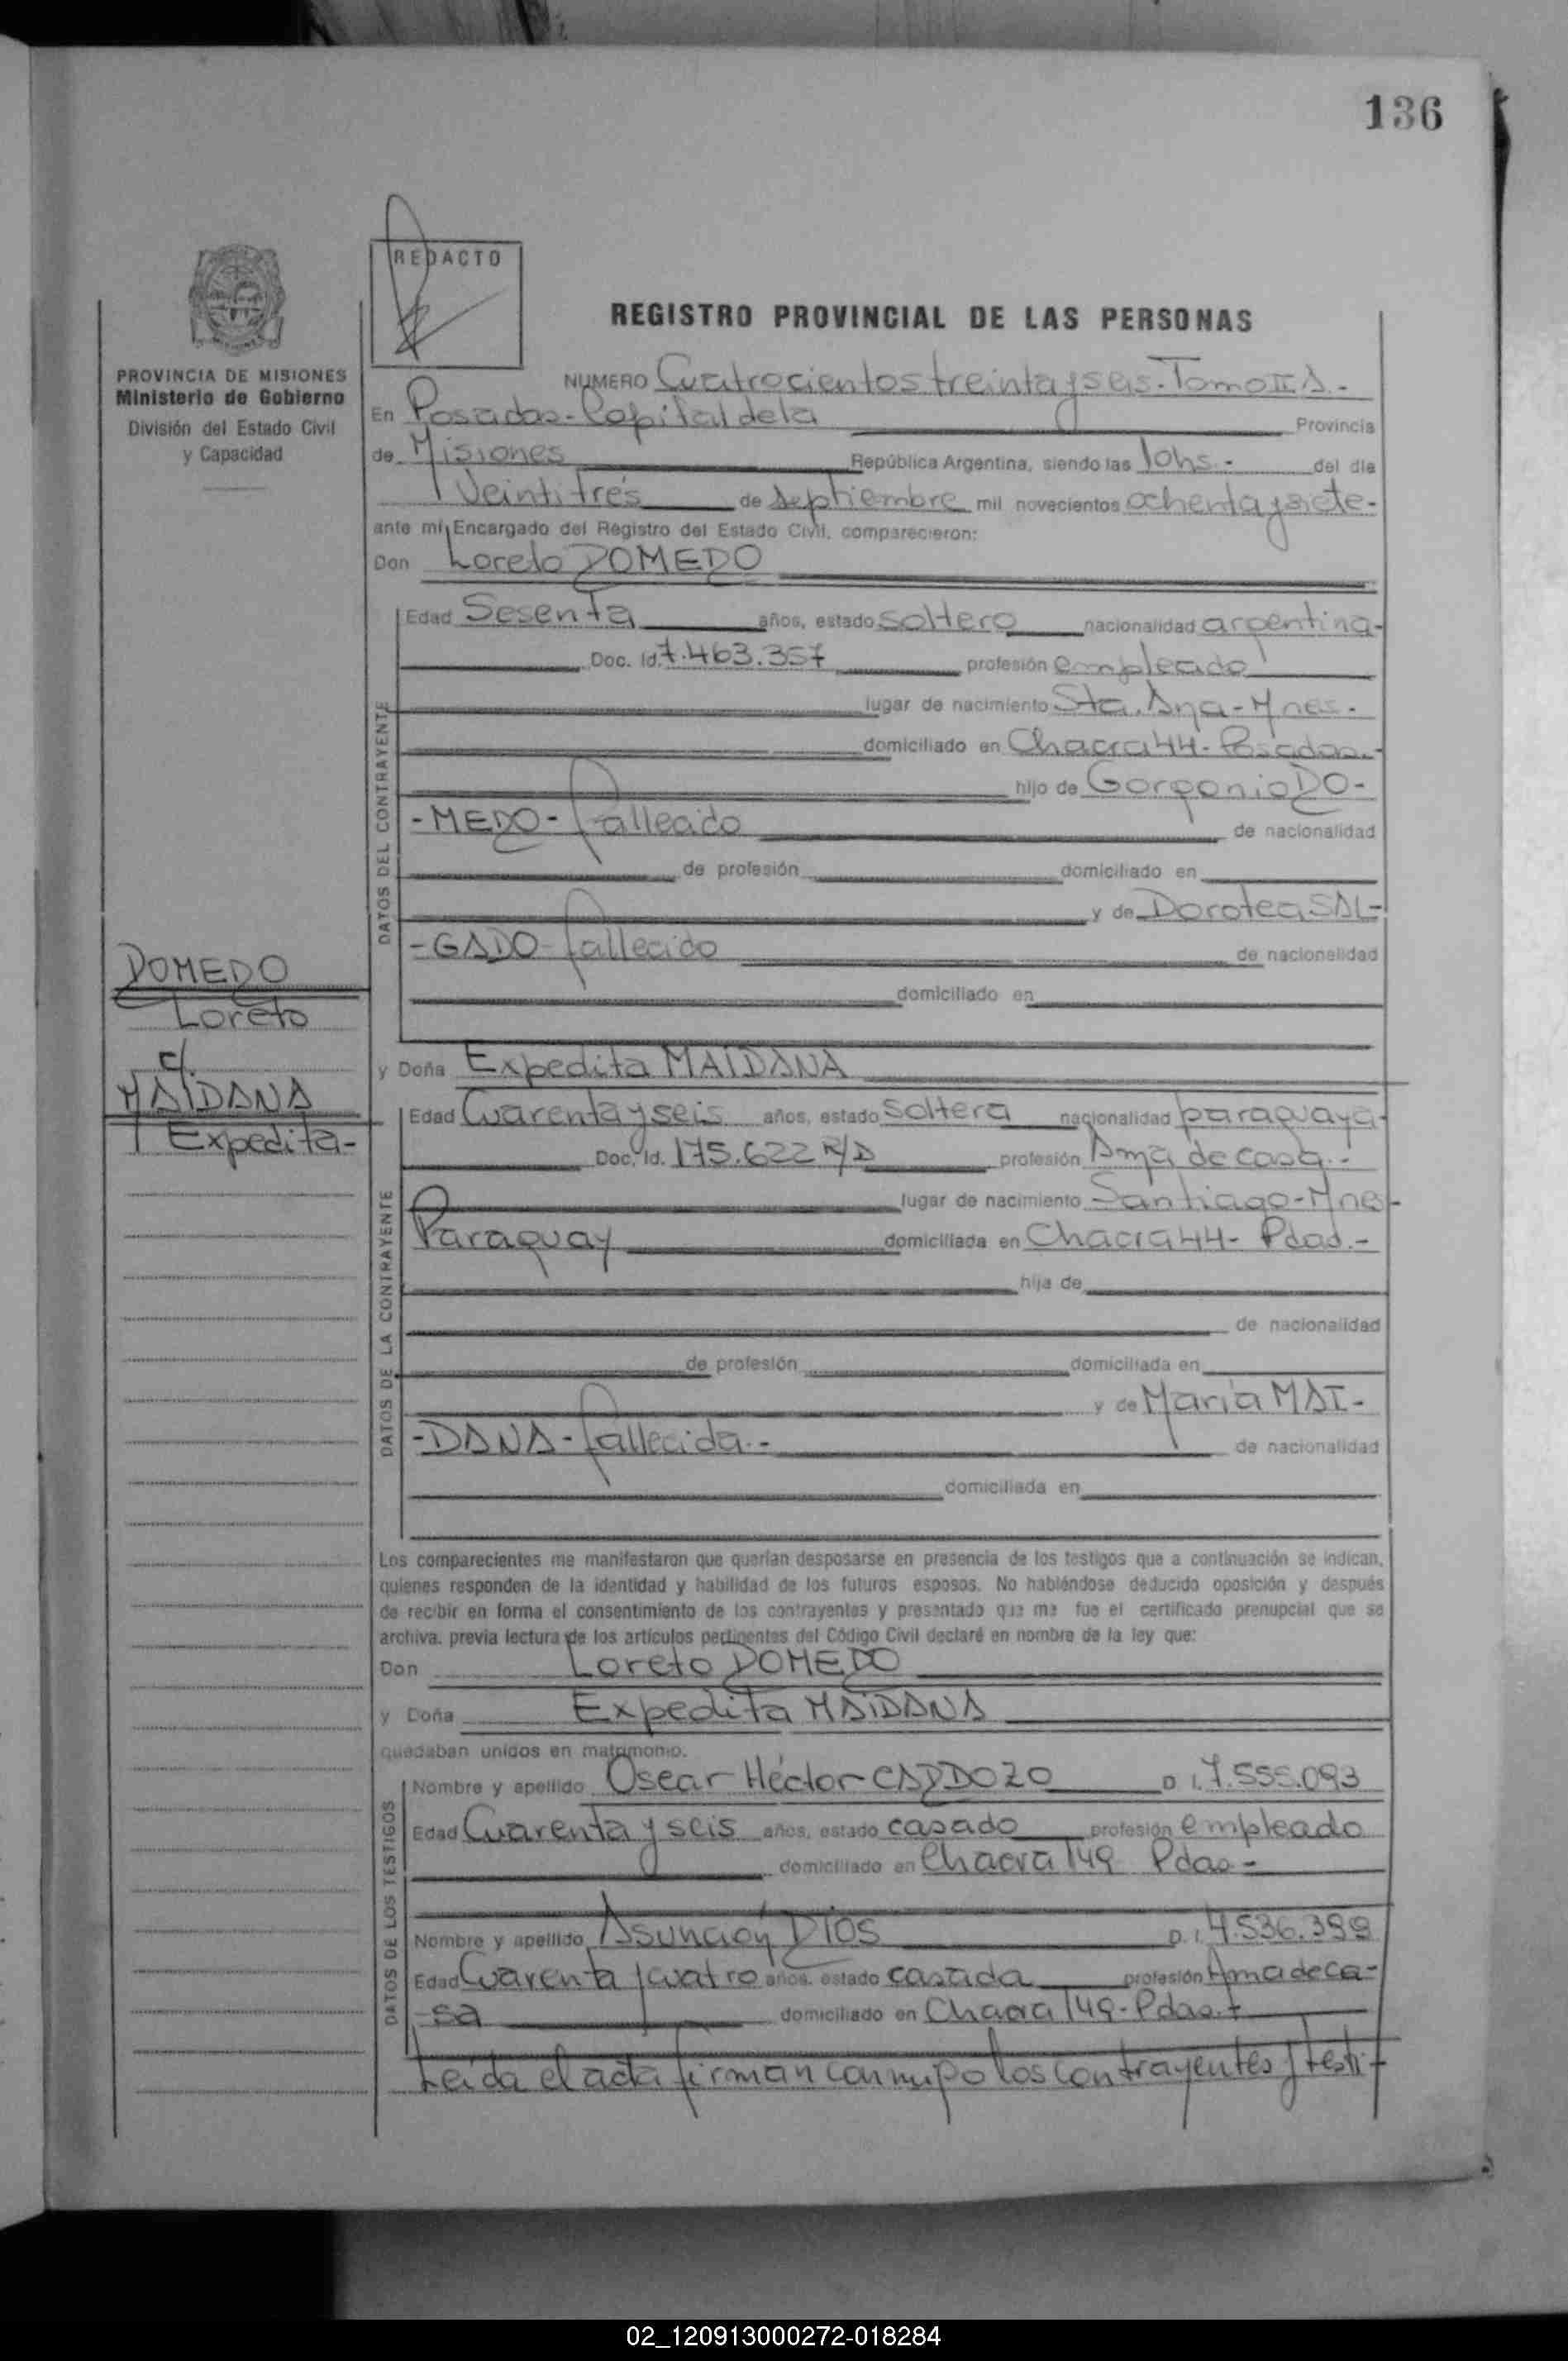 136
REDACTO
REGISTRO PROVINCIAL DE LAS PERSONAS
PROVINCIA DE MISIONES
Ministerio de Gobierno
División del Estado Civil
y Capacidad
NUMERO Cuatrocientos treinta y seis.- Tomo II A.-
En Posadas - Capital de la Provincia
de Misiones República Argentina, siendo las 10 hs.- del día
Veintitrés de Septiembre mil novecientos ochenta y siete-
ante mi, Encargado del Registro del Estado Civil, comparecieron:
Don Loreto ROMERO
DATOS DEL CONTRAYENTE
Edad Sesenta años, estado soltero nacionalidad argentina-
Doc. Id. 7.463.357 profesión empleado
lugar de nacimiento Sta. Ana - Mnes.-
domiciliado en Chacra 44 - Posadas.-
hijo de Gorgonio RO-
-MERO - fallecido de nacionalidad
de profesión domiciliado en
y de Dorotea SAL-
-GADO - fallecido de nacionalidad
domiciliado en
ROMERO
Loreto
c/.
MAIDANA
Expedita-
y Doña Expedita MAIDANA
DATOS DE LA CONTRAYENTE
Edad Cuarenta y seis años, estado soltera nacionalidad paraguaya-
Doc. Id. 175.622 R/D profesión Ama de casa.-
lugar de nacimiento Santiago - Mnes-
Paraguay domiciliada en Chacra 44 - Pdas.-
hija de
de nacionalidad
de profesión domiciliada en
y de María MAI-
-DANA - fallecida.- de nacionalidad
domiciliada en
Los comparecientes me manifestaron que querían desposarse en presencia de los testigos que a continuación se indican,
quienes responden de la identidad y habilidad de los futuros esposos. No habiéndose deducido oposición y después
de recibir en forma el consentimiento de los contrayentes y presentado que me fue el certificado prenupcial que se
archiva. previa lectura de los artículos pertinentes del Código Civil declaré en nombre de la ley que:
Don Loreto ROMERO
y Doña Expedita MAIDANA
quedaban unidos en matrimonio.
DATOS DE LOS TESTIGOS
Nombre y apellido Oscar Héctor CARDOZO D. I. 7.555.093
Edad Cuarenta y seis años, estado casado profesión empleado
domiciliado en Chacra 149 Pdas-
Nombre y apellido Asunción RIOS D. I. 4.536.399
Edad Cuarenta y cuatro años, estado casada profesión Ama de ca-
-sa domiciliado en Chacra 149 - Pdas.-
Leída el acta firman conmigo los contrayentes y testi-
02_120913000272-018284